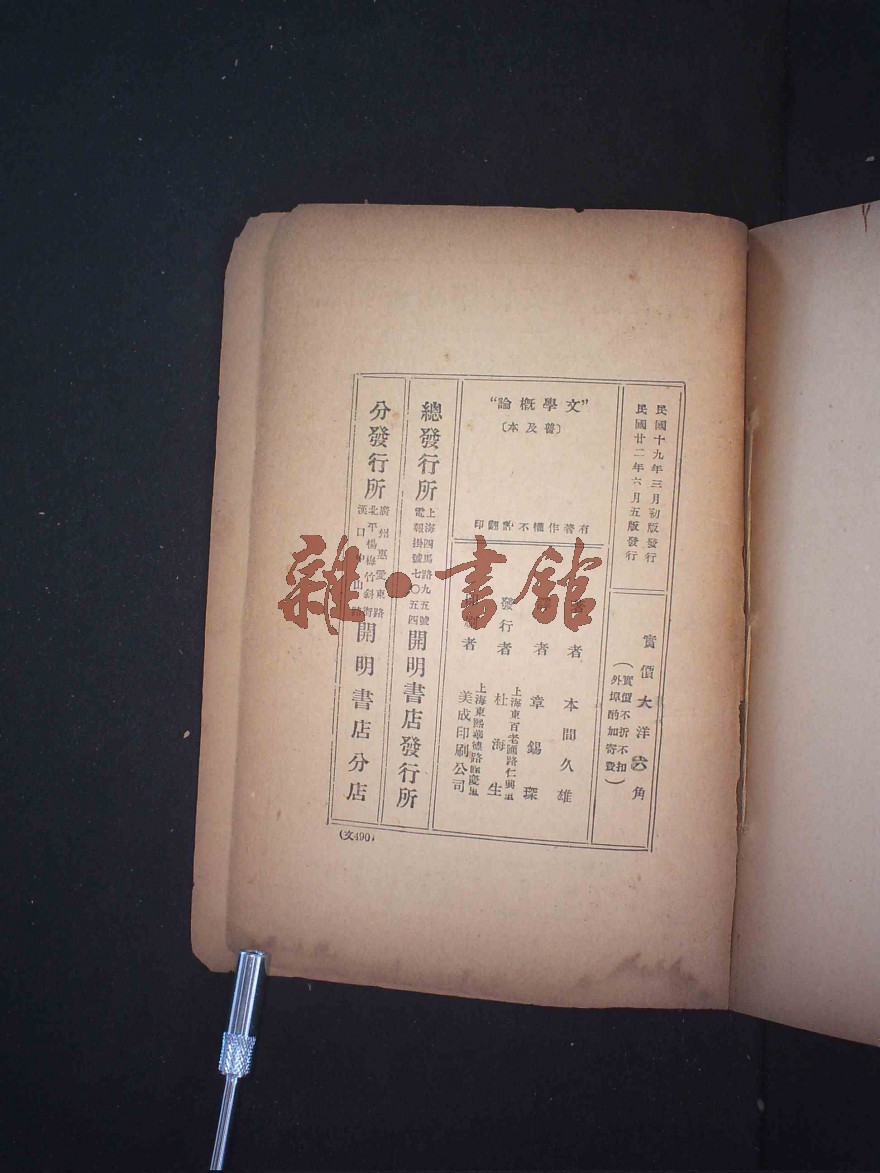 民國十九年三月初版發行
民國廿二年六月五版發行
實價大洋六角
(實價不折不扣
外埠酌加寄費)
“文學概論”
〔普及本〕
有著作權不許翻印
著者 本間久雄
者 章錫琛
發行者 杜海生
上海東百老匯路仁興里
者 美成印刷公司
上海東熙華德路
總發行所 上海四馬路九五號 開明書店發行所
電報掛號七〇五四
分發行所 廣州惠愛東路 開明書店分店
北平楊梅竹斜街
漢口中山路
(文490)
雜·書館